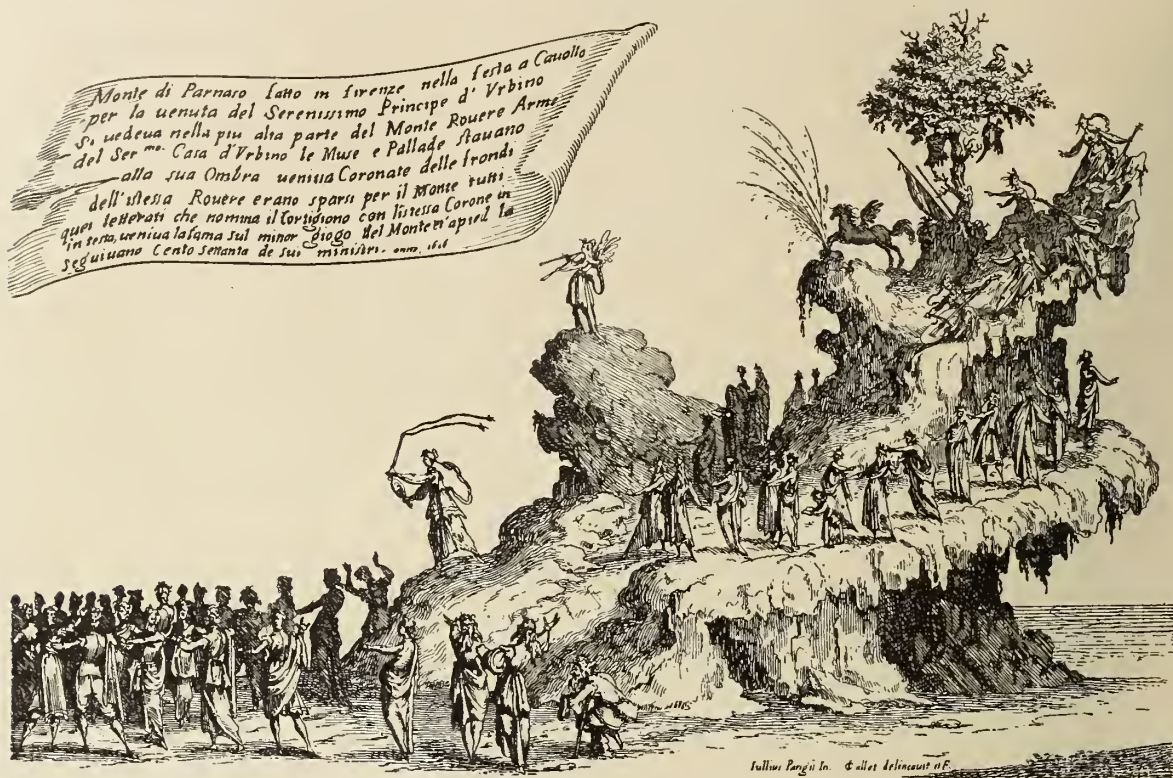 Monte di Parnaso fatto in firenze nella festa a Cauallo
per la uenuta del Serenissimo Principe d'Vrbino
Si uedeua nella piu alta parte del Monte Rouere Arme
del Ser.mo Casa d'Vrbino le Muse e Pallade stauano
alla sua Ombra ueniua Coronate delle frondi
dell'istessa Rouere erano sparsi per il Monte tutti
quei letterati che nomina il Cortigiono con listessa Corone in
in testa, ueniua la fama sul minor giogo del Monte apied la
seguiuano Cento settanta de sui ministri. 1616
Iullius Parigii In. Callot delineauit et F.